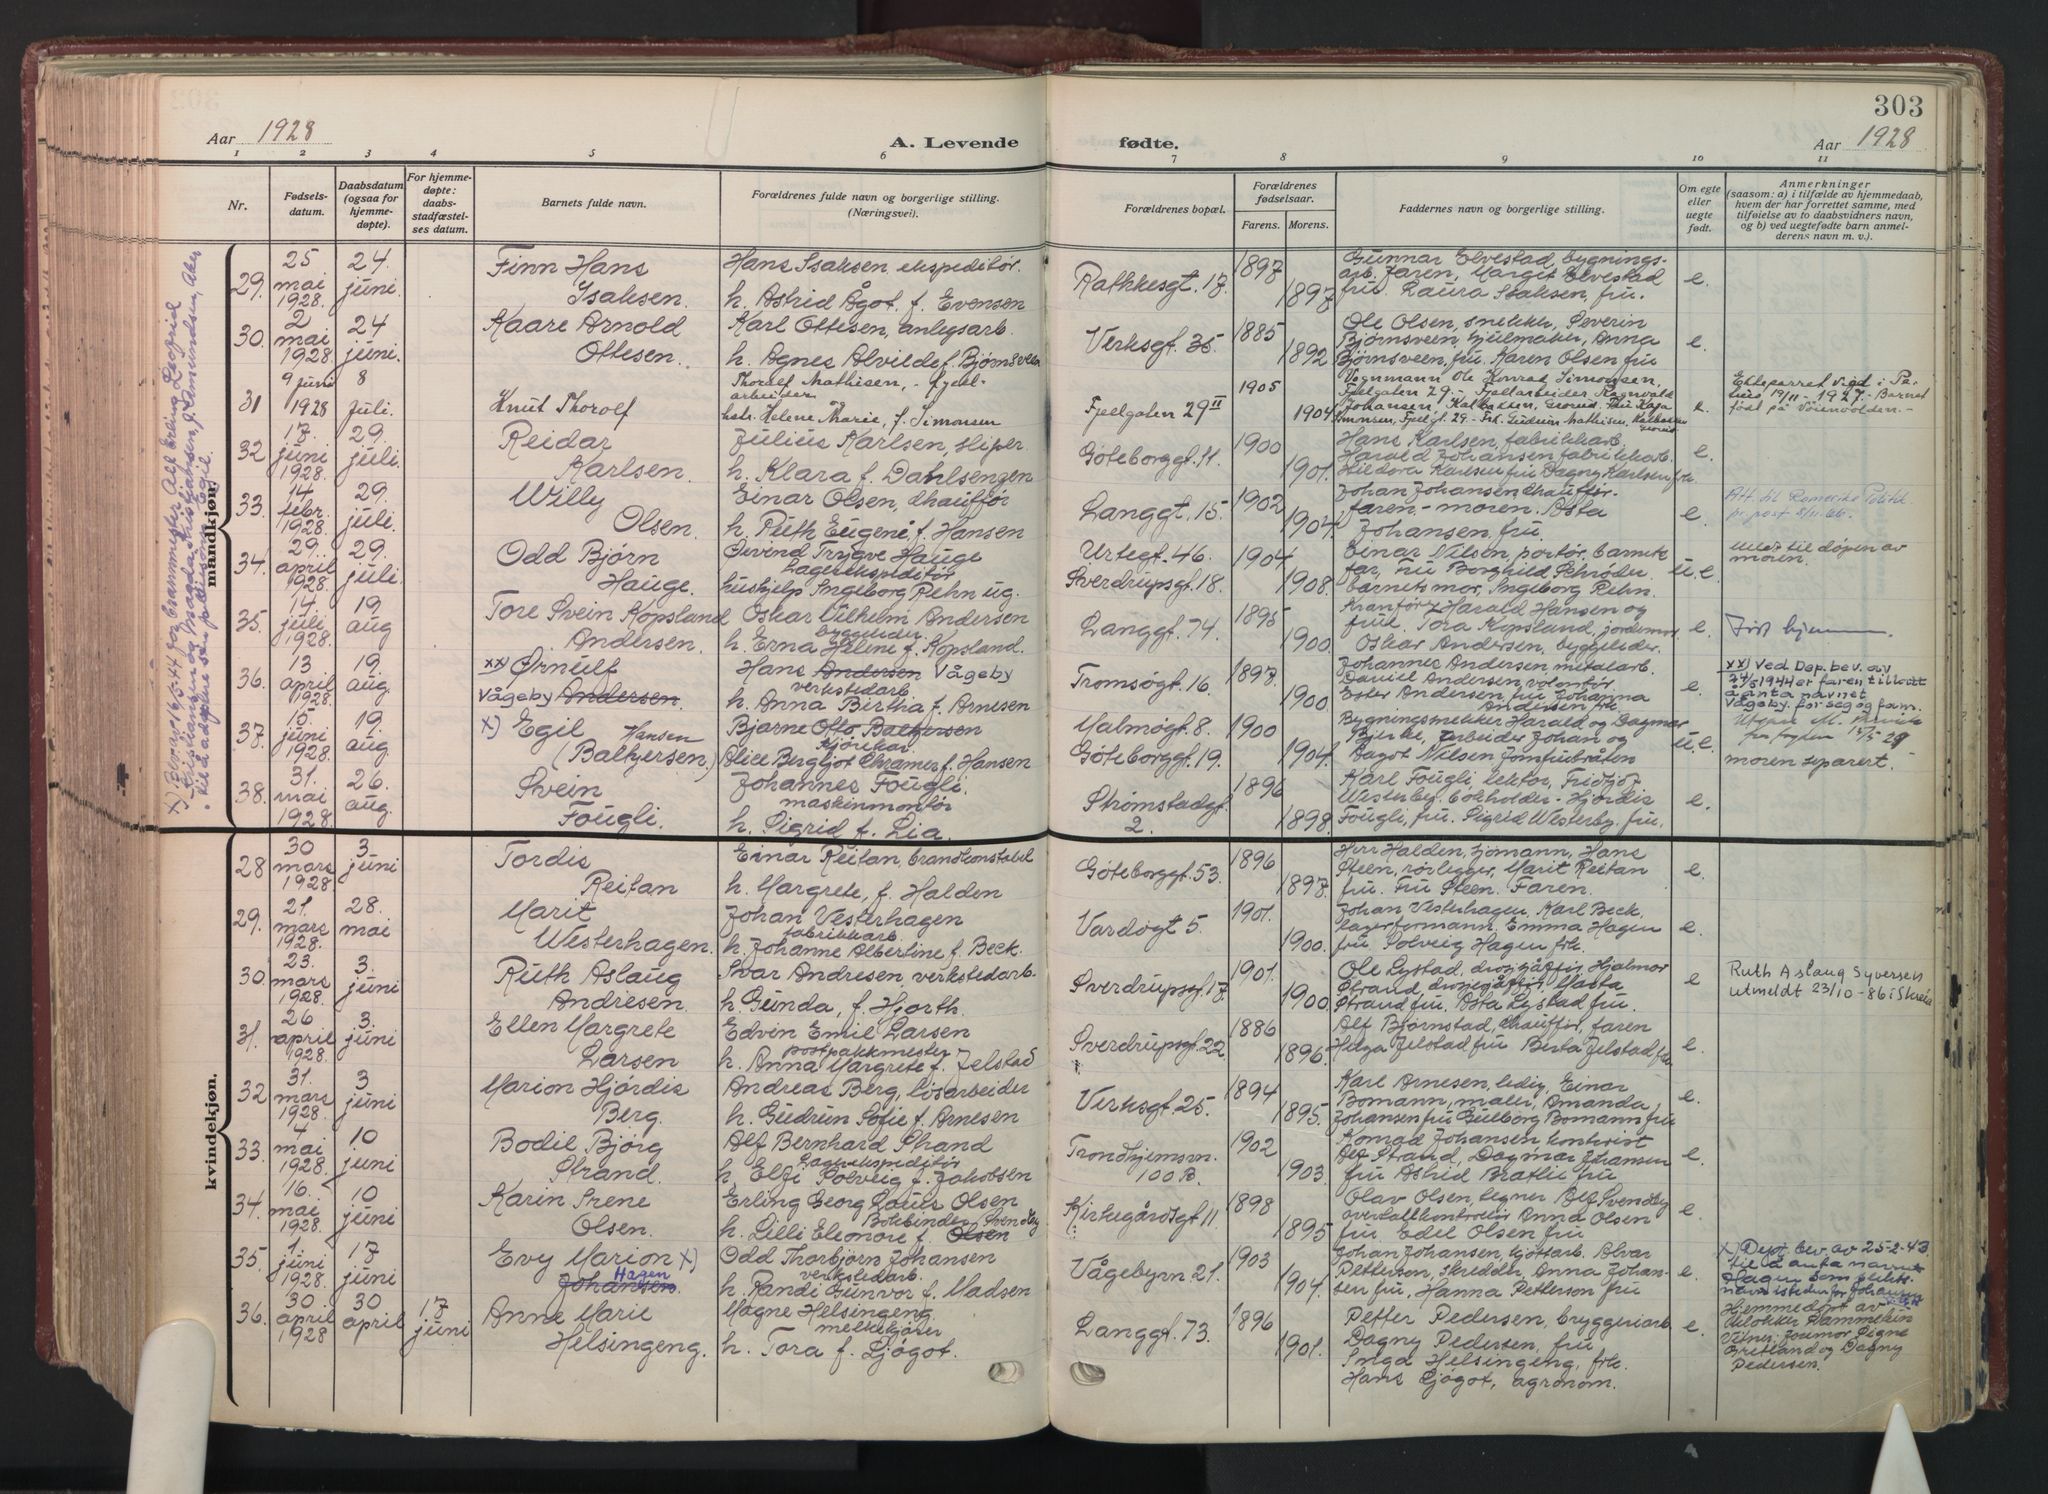 303
Aar 1928
A. Levende
fødte.
Aar 1928
1 2 3 4 5 6 7 8 9 10 11
Nr.
Fødsels-
datum.
Daabsdatum
(ogsaa for
hjemme-
døpte).
For hjemme-
døpte:
daabs-
stadfæstel-
ses datum.
Barnets fulde navn.
Forældrenes fulde navn og borgerlige stilling.
(Næringsvei).
Forældrenes bopæl.
Forældrenes
fødselsaar.
Farens. Morens.
Faddernes navn og borgerlige stilling.
Om egte
eller
uegte
født.
Anmerkninger
(saasom: a) i tilfælde av hjemmedaab,
hvem der har forrettet samme, med
tilføielse av to daabsvidners navn,
og b) ved uegtefødte barn anmel-
derens navn m. v.).
mandkjøn.
29. 25 mai 1928 24. juni.
Finn Hans
Isaksen.
Hans Isaksen, ekspeditør.
h. Astrid Ågot f. Evensen
Rathkesgt. 17. 1897 1897
Gunnar Elvestad, bygnings-
arb. Faren, Margit Elvestad
fru. Laura Isaksen, fru.
e.
30. 2 mai 1928 24 juni.
Kaare Arnold
Ottesen.
Karl Ottesen, anlegsarb.
h. Agnes Alvilde f. Bjørnsveen
Verksgt. 35. 1885 1892
Ole Olsen, snekker, Severin
Bjørnsveen, hjulmaker, Anna
Bjørnsveen, fru. Karen Olsen fru
e.
31 9 juni 1928 8 juli.
Knut Thorolf
Thorolf Mathisen,
arbeider og
hstr. Helene Marie, f. Simonsen
Fjellgaten 29 II 1905 1904
Vognmann Ole Konrad Simonsen,
Fjellgaten 29 - Fjellarbeider Ragnvald
Johansen,
e.
Ekteparret viet i
19/11 - 1927. - Barnet
født på Vøienvolden. -
32 17. juni 1928 29. juli.
Reidar
Karlsen.
Julius Karlsen, sliper
h. Klara f. Dahlsengen
Gøteborggt. 11. 1900 1901.
Hans Karlsen, fabrikkarb.
Harald Johansen fabrikkarb.
Hildora Karlsen fru Dagny Karlsen frk.
e.
33. 14 febr. 1928 29. juli.
Willy
Olsen.
Einar Olsen, chauffør
h. Ruth Eugenie f. Hansen
Langgt. 15. 1902 1904.
Johan Johansen chauffør.
faren. - moren. Asta
Johansen. fru.
e.
Att. til Romerike Politik.
pr. post 8/11. 66.
34. 29. april 1928 29. juli
Odd Bjørn
Hauge.
Øivind Trygve Hauge
Lagerekspeditør
hushjelp Ingeborg Rehn ug.
Urtegt. 46. 1904
Sverdrupsgt. 18. 1908.
Einar Nilsen, portør, barnets
far, Fru Borghild Schrøder
barnets mor, Ingeborg Rehn.
u.e.
til døpen av
moren.
35. 14 juli 1928 19 aug
Tore Svein Kopsland
Andersen.
Oskar Vilhelm Andersen
byggeleder
h. Erna Helene f. Kopsland.
Langgt. 74. 1895 1900.
Kranfører Harald Hansen og
frue. Tora Kopsland, jordemor
Oskar Andersen, byggeleder.
e.
36. 13 april 1928 19. aug.
xx) Ørnulf
Vågeby Andersen
Hans Andersen Vågeby
verkstedarb.
h. Anna Birtha f. Arnesen
Tromsøgt. 16. 1897. 1900
Johannes Andersen metalarb.
Daniel Andersen, volontør
Ester Andersen, fru Johanna
Andersen fru
e.
xx) Ved Dep. bev. av
24/5 1944 er faren tillatt
å anta navnet
Vågeby for seg og fam.
37. 15 juni 1928 19 aug.
x) Egil Hansen
(Baltzersen.)
Bjarne Otto Baltzersen
kjørekar
Alice Bergljot Chramer f. Hansen
Malmøgt. 8. 1900
Gøteborggt. 19. 1904.
Bygningssnekker Harald og Dagmar
Bjerke, arbeider Johan og
Dagot Nilsen Jomfrubråten
u.e.
moren separert.
38. 31. mai 1928. 26. aug.
Svein
Fougli.
Johannes Fougli.
maskinmontør
h. Sigrid f. Lia.
Strømstadgt. 2. 1896 1898.
Karl Fougli lektor, Fridtjof
Westerby, bokholder - Hjørdis
Fougli, fru. Sigrid Westerby. fru.
e.
kvindekjøn.
28 30 mars 1928 3. juni
Tordis
Reitan
Einar Reitan, brandkonstabel
h. Margrete, f. Halden
Gøteborggt. 53. 1896 1897.
Herr Halden, sjømann, Hans
Steen, rørlegger, Marit Reitan
fru. Fru Steen. Faren.
e.
29. 21. mars 1928. 28. mai
Marit
Westerhagen.
Johan Vesterhagen
fabrikkarb.
h. Johanne Albertine f. Beck.
Vardøgt 5. 1901. 1900.
Johan Vesterhagen, Karl Beck.
lagerformann. Emma Hagen
fru Solveig Hagen frk.
e.
30. 23. mars 1928. 3. juni
Ruth Aslaug
Andresen.
Ivar Andresen, verkstedarb.
h. Gunda, f. Hjorth.
Sverdrupsgt. 17. 1901. 1900
Ole Lystad, Hjalmar
Strand,
Strand fru. Asta Lystad fru.
e
Ruth Aslaug Syversen
utmeldt 23/10 - 86 i Skreia
31. 26 april 1928. 3. juni
Ellen Margrete
Larsen
Edvin Emil Larsen
postpakkmester
h. Anna Margrete f. Jelstad
Sverdrupsgt. 22. 1886 1896.
Alf Bjørnstad, chauffør, faren
Helga Jelstad fru Berta Jelstad frk.
e.
32 31. mars 1928. 3 juni
Marion Hjørdis
Berg.
Andreas Berg, løsarbeider
h. Gudrun Sofie f. Arnesen
Verksgt. 25. 1894 1895.
Karl Arnesen, ledig, Einar
Bomann, maler, Amanda
Johansen fru Gulborg Bomann fru
e.
33. 4 mai 1928. 10 juni
Bodil Bjørg
Strand.
Alf Bernhard Strand
Lagerekspeditør
h. Elfi Solveig f. Jakobsen
Trondhjemsvn.
100 B. 1902 1903.
Konrad Johansen kontorist
Alf Strand, Dagmar Johansen
fru Astrid Bratlie fru
e.
34. 16. mai 1928. 10 juni
Karin Irene
Olsen.
Erling Georg Laurs Olsen
Bokbinder Svendby
h. Lilli Eleonore f. Olsen
Kirkegårdsgt. 11. 1898 1895
Olav Olsen, tegner Alf Svendby
overtallkontrollør Anna Olsen
fru Edel Olsen fru
e.
35. 1. juni 1928. 17 juni
Evy Marion x)
Hagen
Johansen.
Odd Thorbjørn Johansen
verkstedarb.
h. Randi Gunvor f. Madsen
Vågebyvn. 21. 1903 1904.
Johan Johansen, Alvar
Petterson, skredder, Anna Johan-
sen fru, Hanna Petterson fru
e.
x) Dept. bev. av 25-2-43.
til å anta navnet
Hagen som slekts-
navn istedenfor Johansen
36. 30 april 1928 30 april 17 juni
Anne Marie
Helsingeng.
Magne Helsingeng
melkekjører
h. Tora f. Ljøgot.
Langgt. 73. 1896 1901.
Petter Pedersen, bryggeriarb
Dagny Pedersen, fru
Inga Helsingeng, frk.
Hans Ljøgot, agronom.
e.
Hjemmedøpt av
Vitner: Jormor Signe
og Dagny
Pedersen.